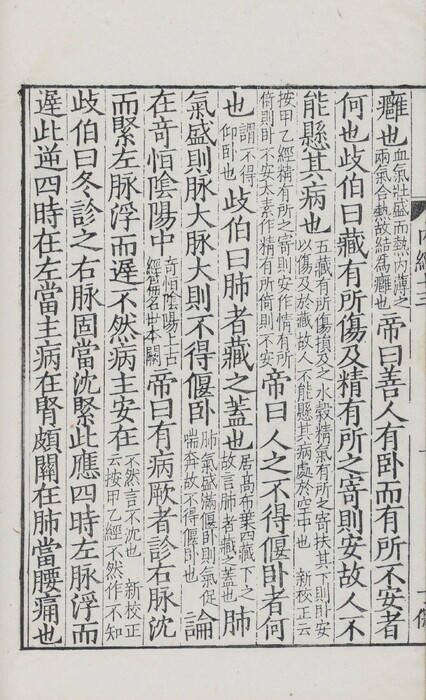 癰也血氣壯盛而熱內薄之兩氣合熱故結爲癰也帝曰善人有卧而有所不安者
何也歧伯曰藏有所傷及精有所之寄則安故人不
能懸其病也五藏有所傷損及之水穀精氣有所之寄扶其下則卧安以傷及於藏故人不能懸其病處於空中也 新校正云
按甲乙經精有所之寄則安作情有所倚則卧不安太素作精有所倚則不安帝曰人之不得偃卧者何
也謂不得仰卧也歧伯曰肺者藏之蓋也居高布葉四藏下之故言肺者藏之蓋也肺
氣盛則脉大脉大則不得偃卧肺氣盛滿偃卧則氣促喘奔故不得偃卧也論
在竒恒隂陽中竒恒隂陽上古經篇名世本闕帝曰有病厥者診右脉沈
而緊左脉浮而遲不然病主安在不然言不沈也 新校正云按甲乙經不然作不知
歧伯曰冬診之右脉固當沈緊此應四時左脉浮而
遲此逆四時在左當主病在腎頗關在肺當腰痛也